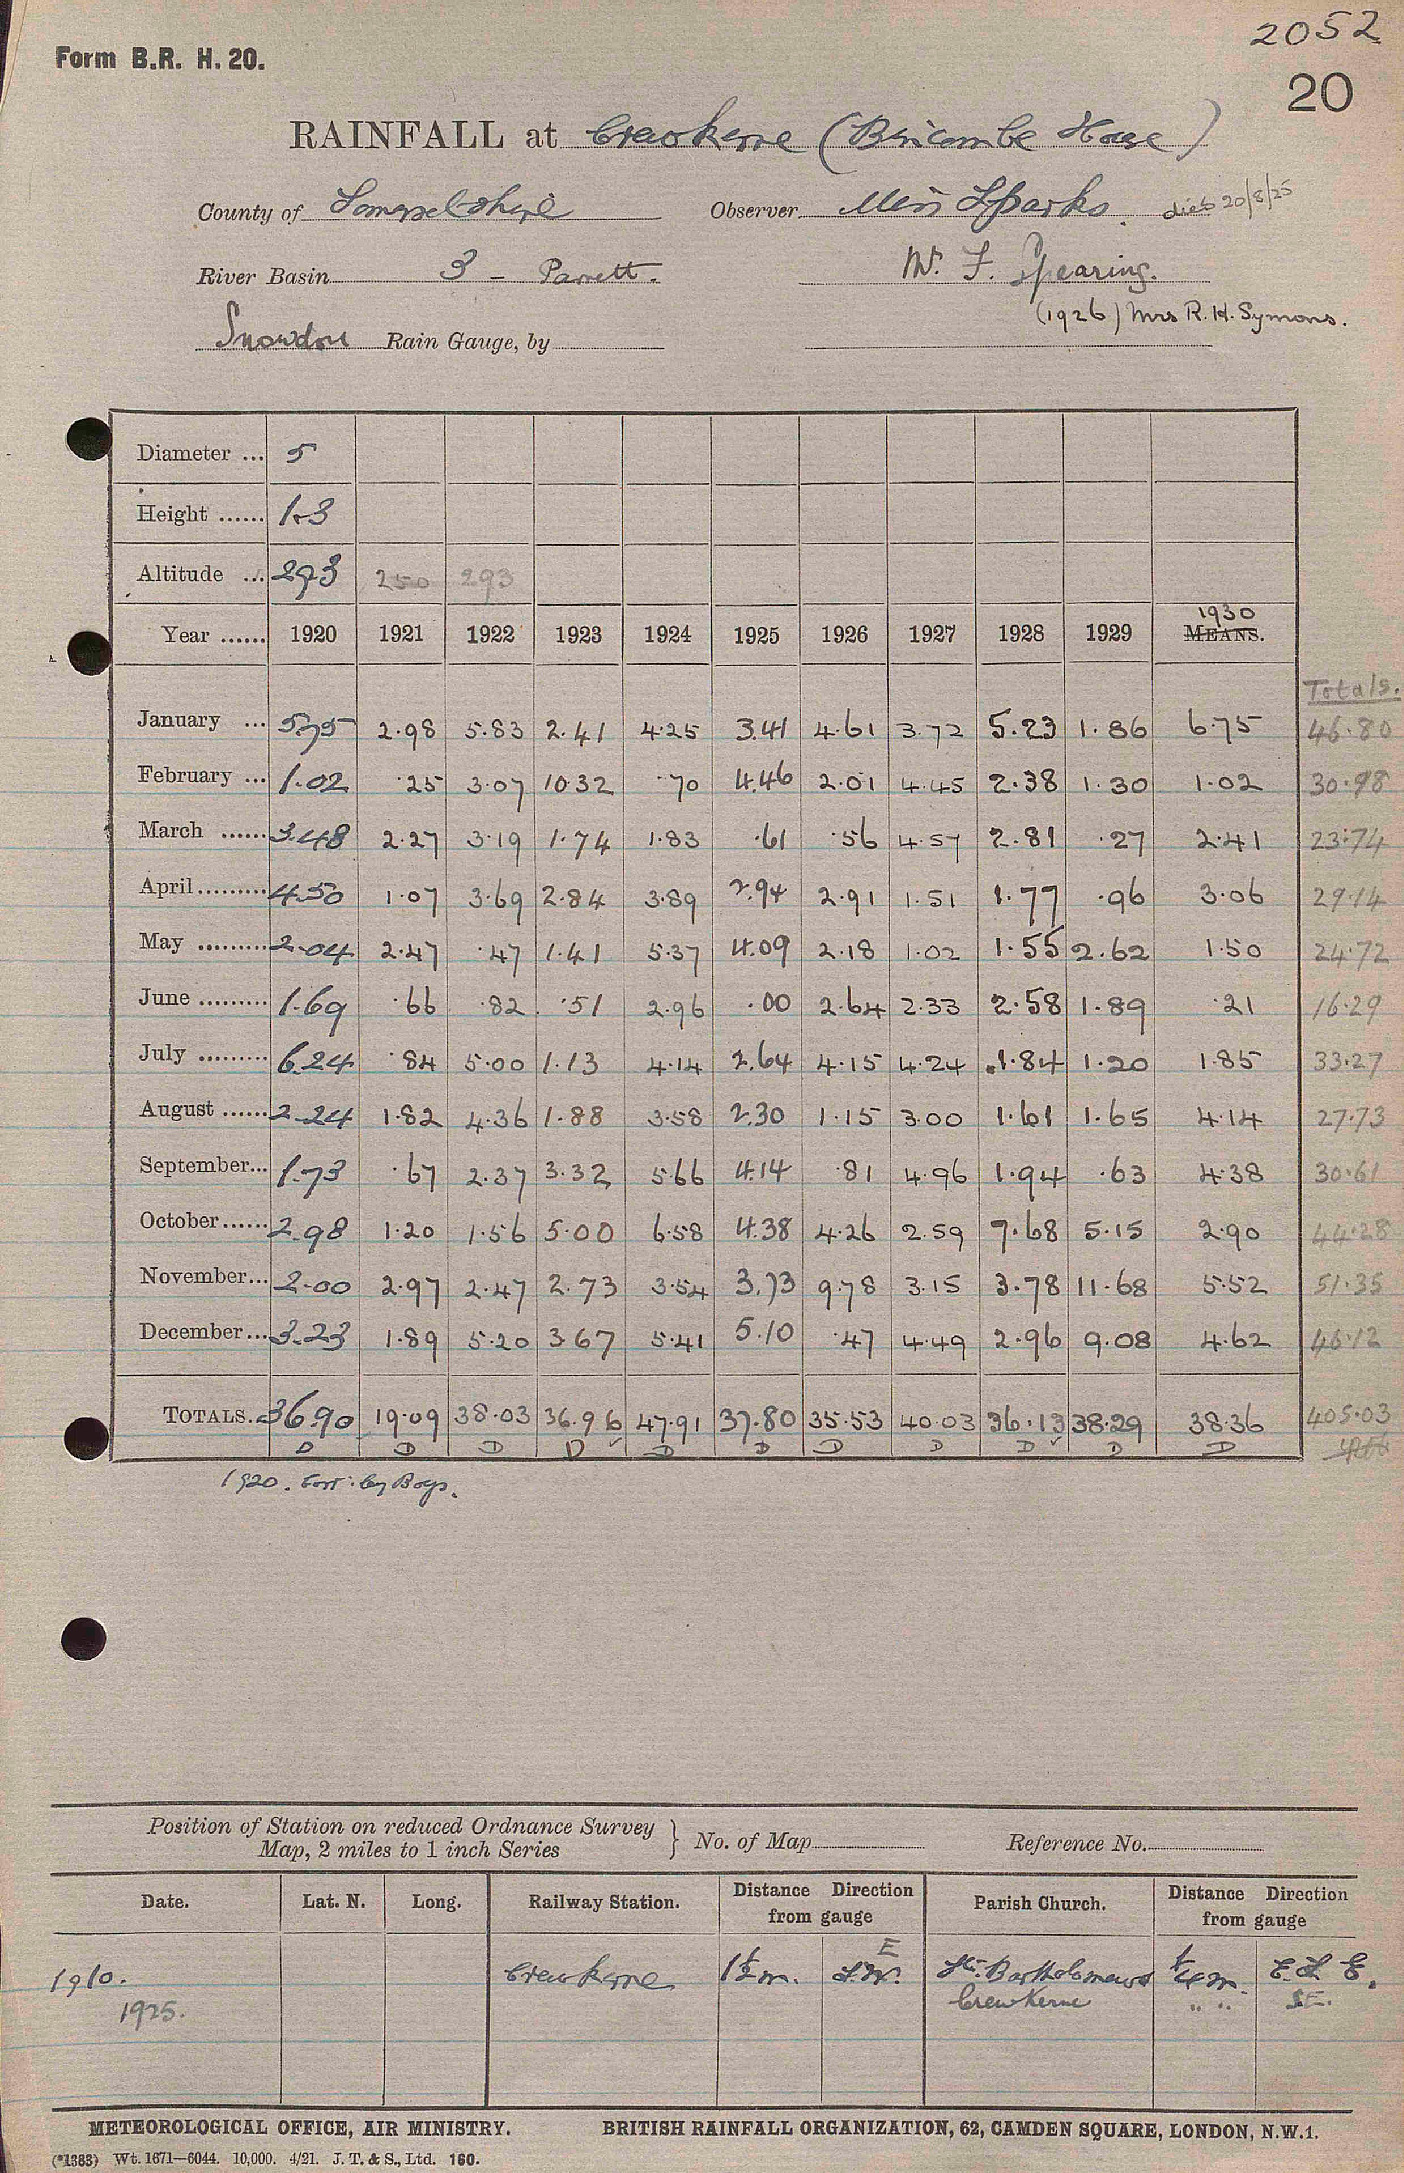 2052
Form B.R. H. 20.
20
RAINFALL at Crewkerne (Brincombe House)
County of Somersetshire Observer Miss Sparks. died 20/8/25
River Basin 3 - Parrett. Mr. F. Spearing.
(1926) Mrs R. H. Symons.
Snowdon Rain Gauge, by
Diameter ... 5
Height ...... 1.3
Altitude ... 293 250 293
Year ...... 1920 1921 1922 1923 1924 1925 1926 1927 1928 1929 1930 MEANS.
Totals.
January ... 5.75 2.98 5.83 2.41 4.25 3.41 4.61 3.72 5.23 1.86 6.75 46.80
February ... 1.02 .25 3.07 10.32 .70 4.46 2.01 4.45 2.38 1.30 1.02 30.98
March ...... 3.48 2.27 3.19 1.74 1.83 .61 .56 4.57 2.81 .27 2.41 23.74
April ......... 4.50 1.07 3.69 2.84 3.89 2.94 2.91 1.51 1.77 .96 3.06 29.14
May ......... 2.04 2.47 .47 1.41 5.37 4.09 2.18 1.02 1.55 2.62 1.50 24.72
June ......... 1.69 .66 .82 .51 2.96 .00 2.64 2.33 2.58 1.89 .21 16.29
July ......... 6.24 .84 5.00 1.13 4.14 2.64 4.15 4.24 1.84 1.20 1.85 33.27
August ...... 2.24 1.82 4.36 1.88 3.58 2.30 1.15 3.00 1.61 1.65 4.14 27.73
September... 1.73 .67 2.37 3.32 5.66 4.14 .81 4.96 1.94 .63 4.38 30.61
October...... 2.98 1.20 1.56 5.00 6.58 4.38 4.26 2.59 7.68 5.15 2.90 44.28
November... 2.00 2.97 2.47 2.73 3.54 3.73 9.78 3.15 3.78 11.68 5.52 51.35
December... 3.23 1.89 5.20 3.67 5.41 5.10 .47 4.49 2.96 9.08 4.62 46.12
TOTALS. 36.90 19.09 38.03 36.96 47.91 37.80 35.53 40.03 36.13 38.29 38.36 405.03
D D D D D D D D D D D
1920. Corr: by Boys.
Position of Station on reduced Ordnance Survey Map, 2 miles to 1 inch Series } No. of Map Reference No.
Date. Lat. N. Long. Railway Station. Distance Direction from gauge Parish Church. Distance Direction from gauge
1910. Crewkerne 1½ m. S.W. E St. Bartholomews ¼ m. E.S.E.
1925. Crewkerne " " S.E.
METEOROLOGICAL OFFICE, AIR MINISTRY. BRITISH RAINFALL ORGANIZATION, 62, CAMDEN SQUARE, LONDON, N.W.1.
(*1383) Wt. 1671—6044. 10,000. 4/21. J. T. & S., Ltd. 160.